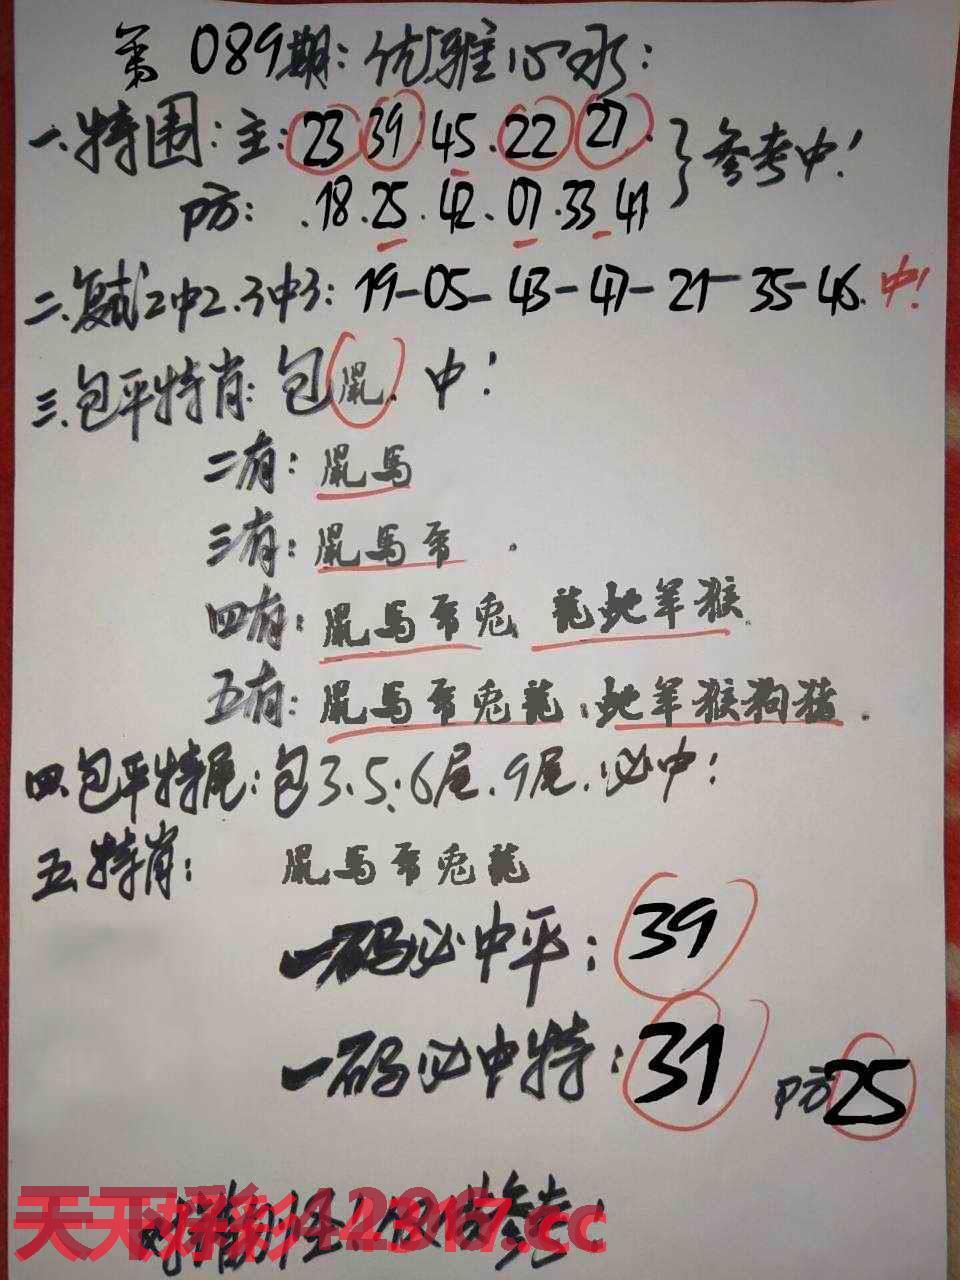 第089期：优雅心水：
一.特围：主：23 39.45.22 27. }参考中！
防：.18.25.42.07.33 41
二.复式2中2.3中3：19-05-43-47-21-35-46.中！
三.包平特肖：包鼠.中！
二有：鼠馬
三有：鼠馬 .
四有：鼠馬 兔 龍蛇羊猴.
五有：鼠馬 兔龍.蛇羊猴狗猪.
四.包平特尾：包3.5.6尾.9尾.必中！
五.特肖：鼠馬 兔龍
一码必中平：39
一码必中特：31 防25
天下彩 .cc